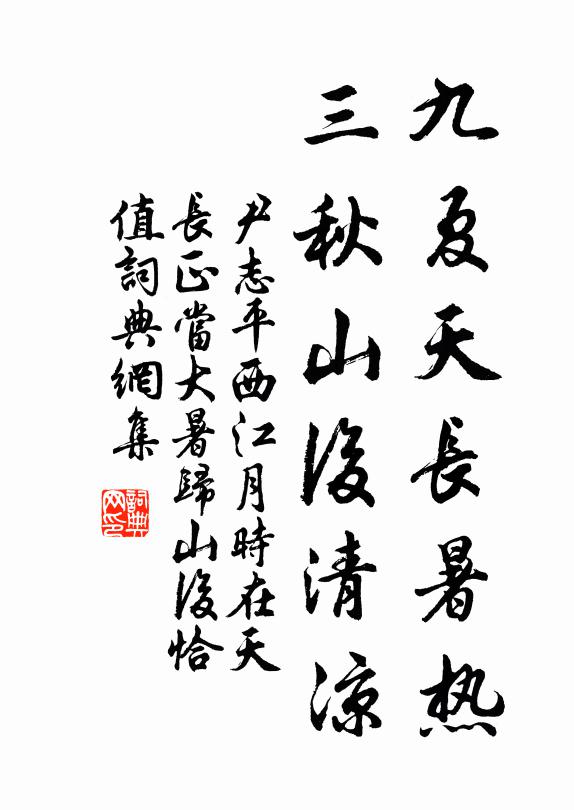 九夏天長暑热
三秋山後清凉
尹志平西江月時在天
長正當大暑歸山後恰
值詞典網集
詞典
网印